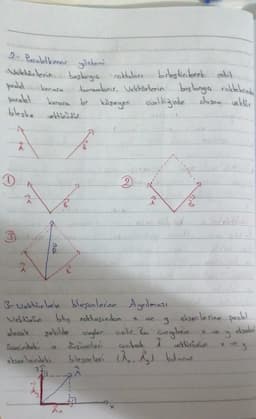 2- Paralelkenar yöntemi
Vektörlerin başlangıç noktaları birleştirilerek
paralel kenara tamamlanır. Vektörlerin başlangıç noktalarından
paralel kenara bir köşegen çizildiğinde oluşan vektör
bileşke vektördür.
A B
① ②
A B A B
③
A R B
3- Vektörlerin bileşenlerine Ayrılması
Vektörün bitiş noktasından x ve y eksenlerine paralel
olacak şekilde çizgiler çizilir. Bu çizgilerin x ve y eksenleri
üzerindeki çizimleri A vektörünün x ve y
eksenlerindeki bileşenleri (Ax, Ay) bulunur.
y A
Ay
Ax x